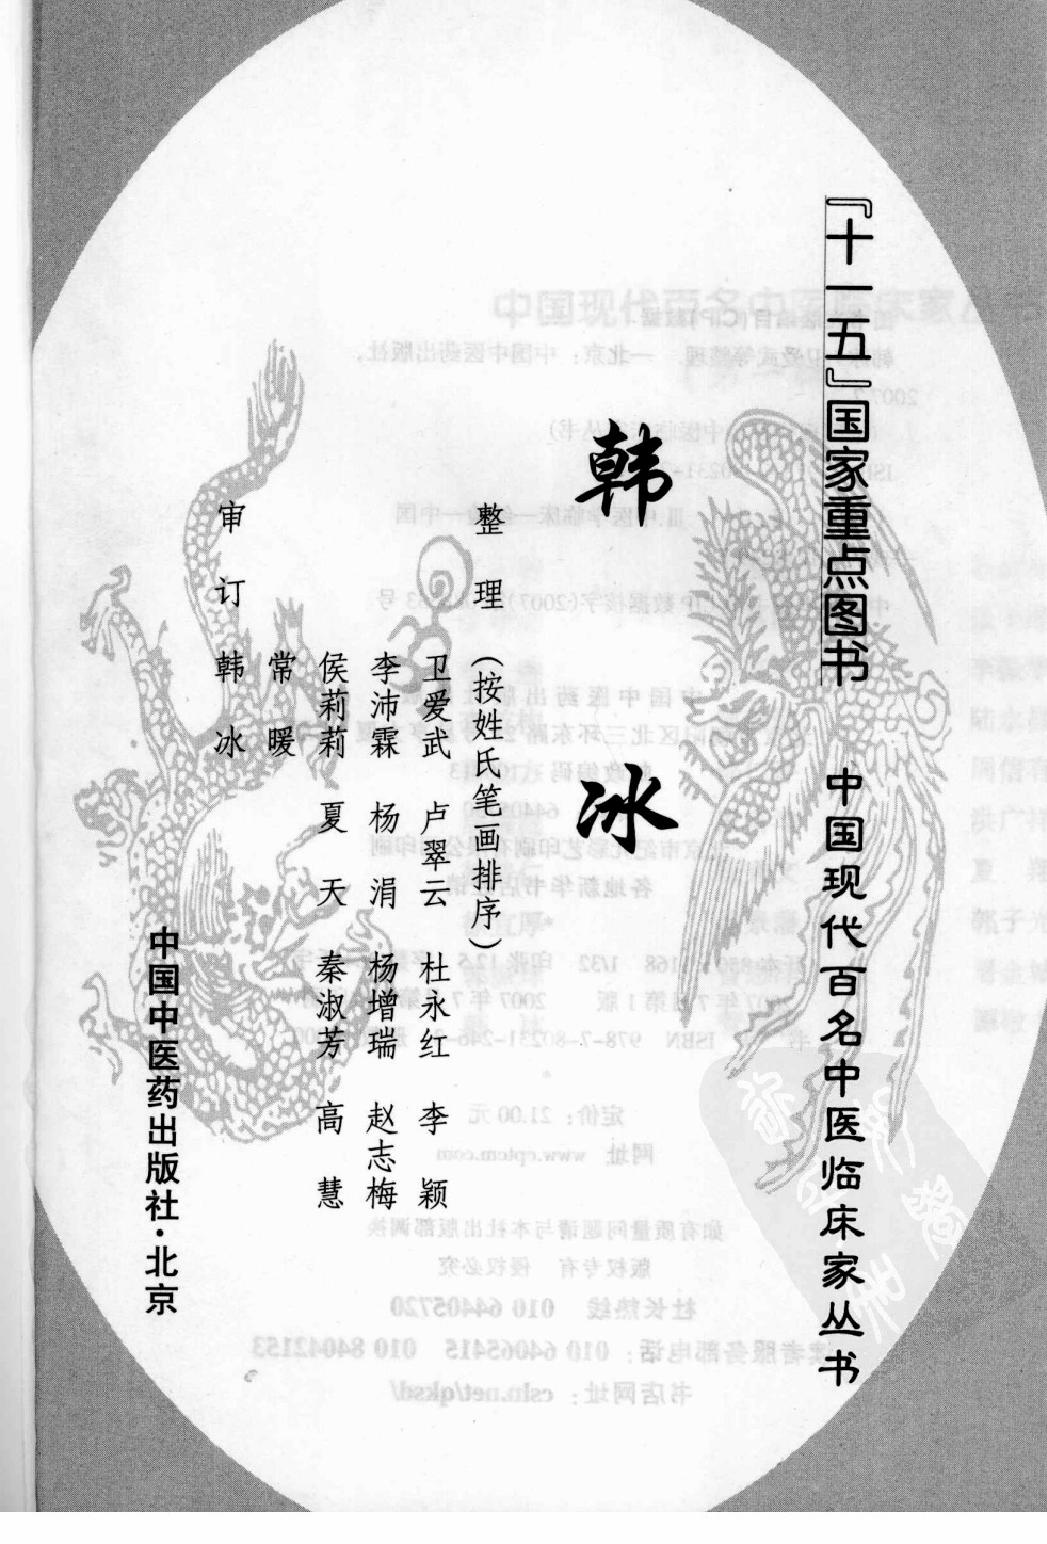 『十一五』国家重点图书 中国现代百名中医临床家丛书
韩冰
整理(按姓氏笔画排序)
卫爱武 卢翠云 杜永红 李颖
李沛霖 杨涓 杨增瑞 赵志梅
侯莉莉 夏天 秦淑芳 高慧
常暖
审订 韩冰
中国中医药出版社·北京